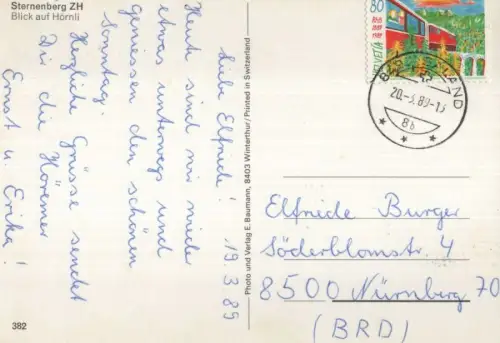 Sternenberg ZH
Blick auf Hörnli
Liebe Elfriede! 19.3.89
Heute sind wir wieder
etwas unterwegs und
geniessen den schönen
Sonntag.
Herzliche Grüsse sendet
Dir die
Ernst u. Erika!
382
Photo und Verlag E. Baumann, 8403 Winterthur/Printed in Switzerland
80
HELVETIA
20.-3.89-13
8b
Elfriede Burger
Söderblomstr. 4
8500 Nürnberg 70
(BRD)